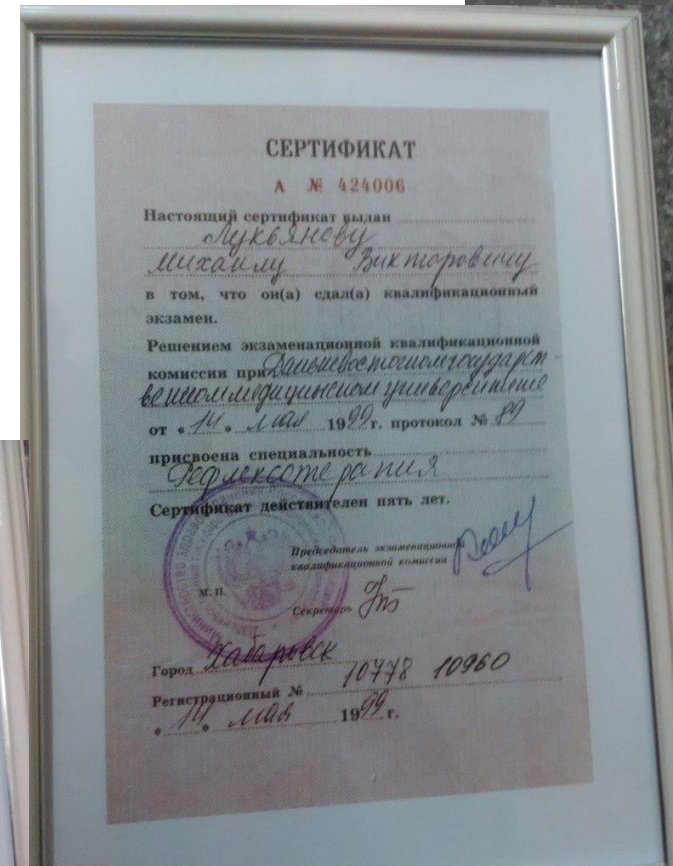 СЕРТИФИКАТ
А № 424006
Настоящий сертификат выдан
Лукьянову
Михаилу Викторовичу
в том, что он(а) сдал(а) квалификационный
экзамен.
Решением экзаменационной квалификационной
комиссии при Дальневосточном государст
венном медицинском университете
от « 14 » мая 1999 г. протокол № 89
присвоена специальность
Рефлексотерапия
Сертификат действителен пять лет.
Председатель экзаменационной
квалификационной комиссии
М. П.
Секретарь
Город Хабаровск
10778 10960
Регистрационный №
« 14 » мая 1999 г.